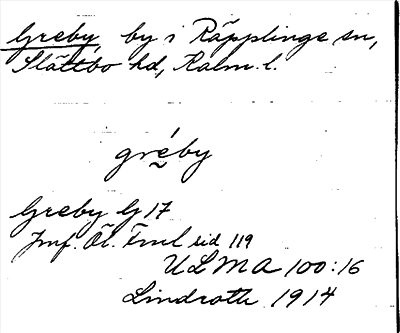 Greby, by i Räpplinge sn,
Slättbo hd, Kalm. l.
gréby
Greby G 17
Jmf. Öl. Fml sid 119
ULMA 100:16
Lindroth 1914